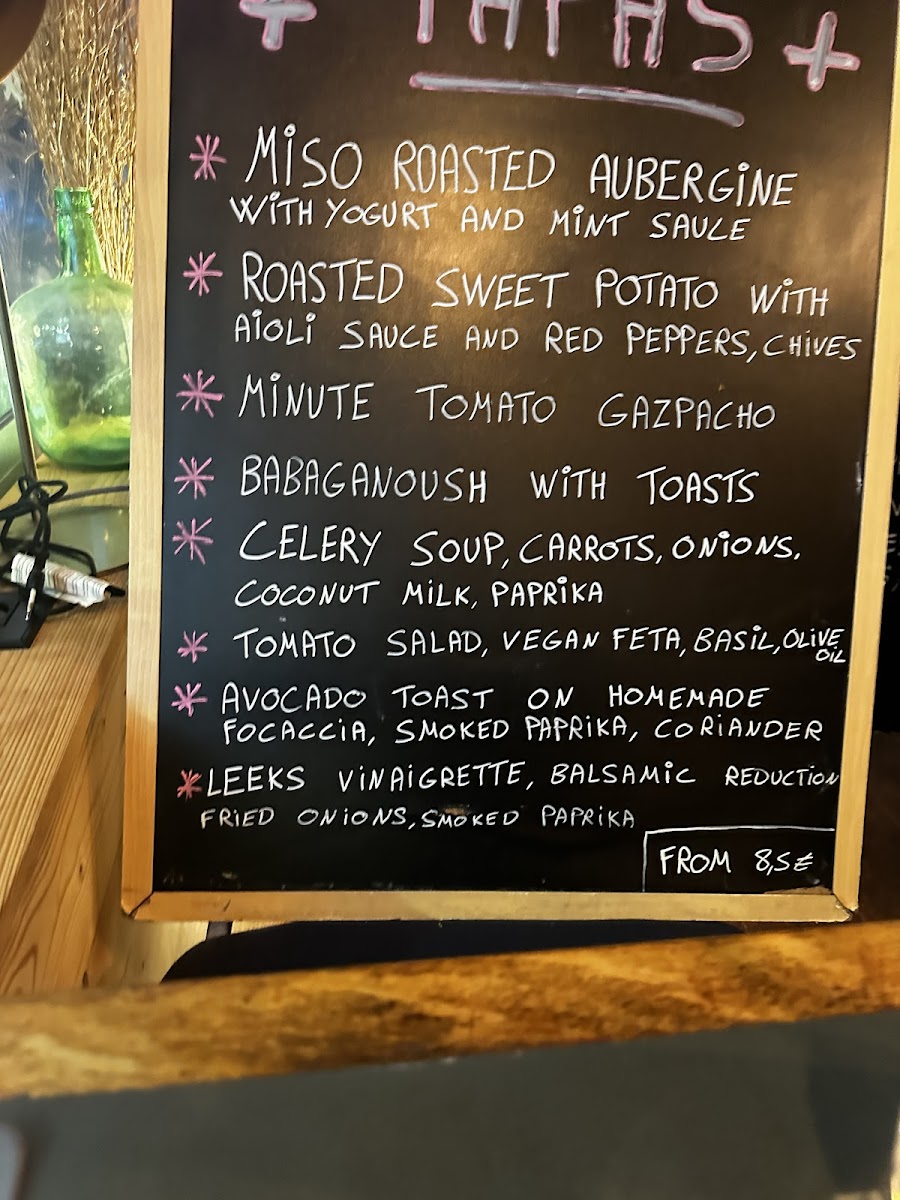 + TAPAS +
* MISO ROASTED AUBERGINE
WITH YOGURT AND MINT SAULE
* ROASTED SWEET POTATO WITH
AIOLI SAUCE AND RED PEPPERS, CHIVES
* MINUTE TOMATO GAZPACHO
* BABAGANOUSH WITH TOASTS
* CELERY SOUP, CARROTS, ONIONS,
COCONUT MILK, PAPRIKA
* TOMATO SALAD, VEGAN FETA, BASIL, OLIVE
OIL
* AVOCADO TOAST ON HOMEMADE
FOCACCIA, SMOKED PAPRIKA, CORIANDER
* LEEKS VINAIGRETTE, BALSAMIC REDUCTION
FRIED ONIONS, SMOKED PAPRIKA
FROM 8,5€